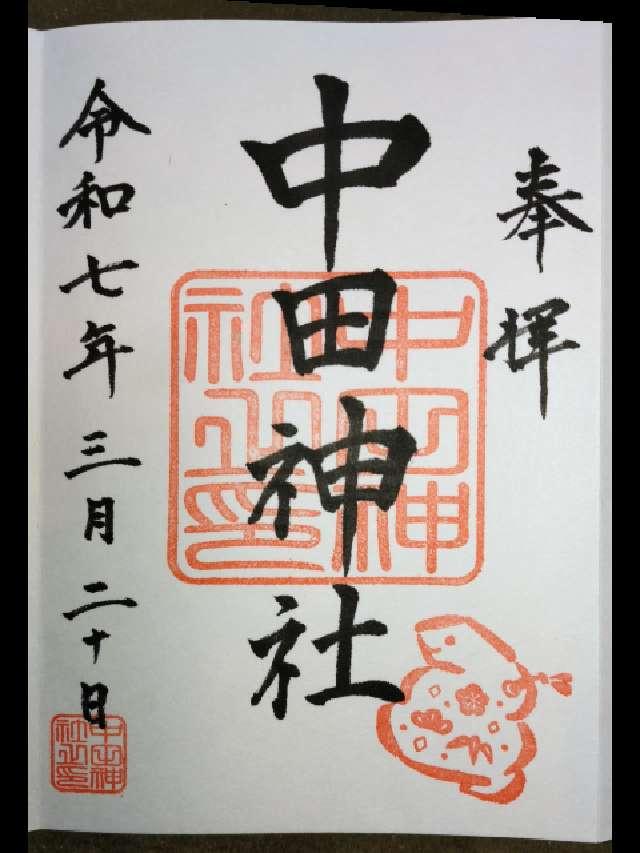 奉拝
中田神社
中田神社之印
令和七年三月二十日
中田神社之印